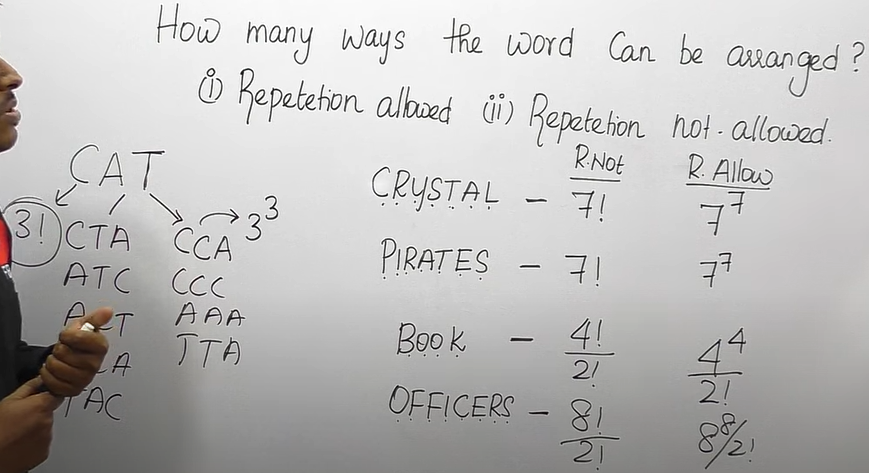 How many ways the word Can be arranged?
(i) Repetetion allowed (ii) Repetetion not-allowed.
R.Not R. Allow
CAT
3! 3³
CTA CCA
ATC CCC
AAA
TTA
TAC
CRYSTAL - 7! 7⁷
PIRATES - 7! 7⁷
BOOK - 4!/2! 4⁴/2!
OFFICERS - 8!/2! 8⁸/2!